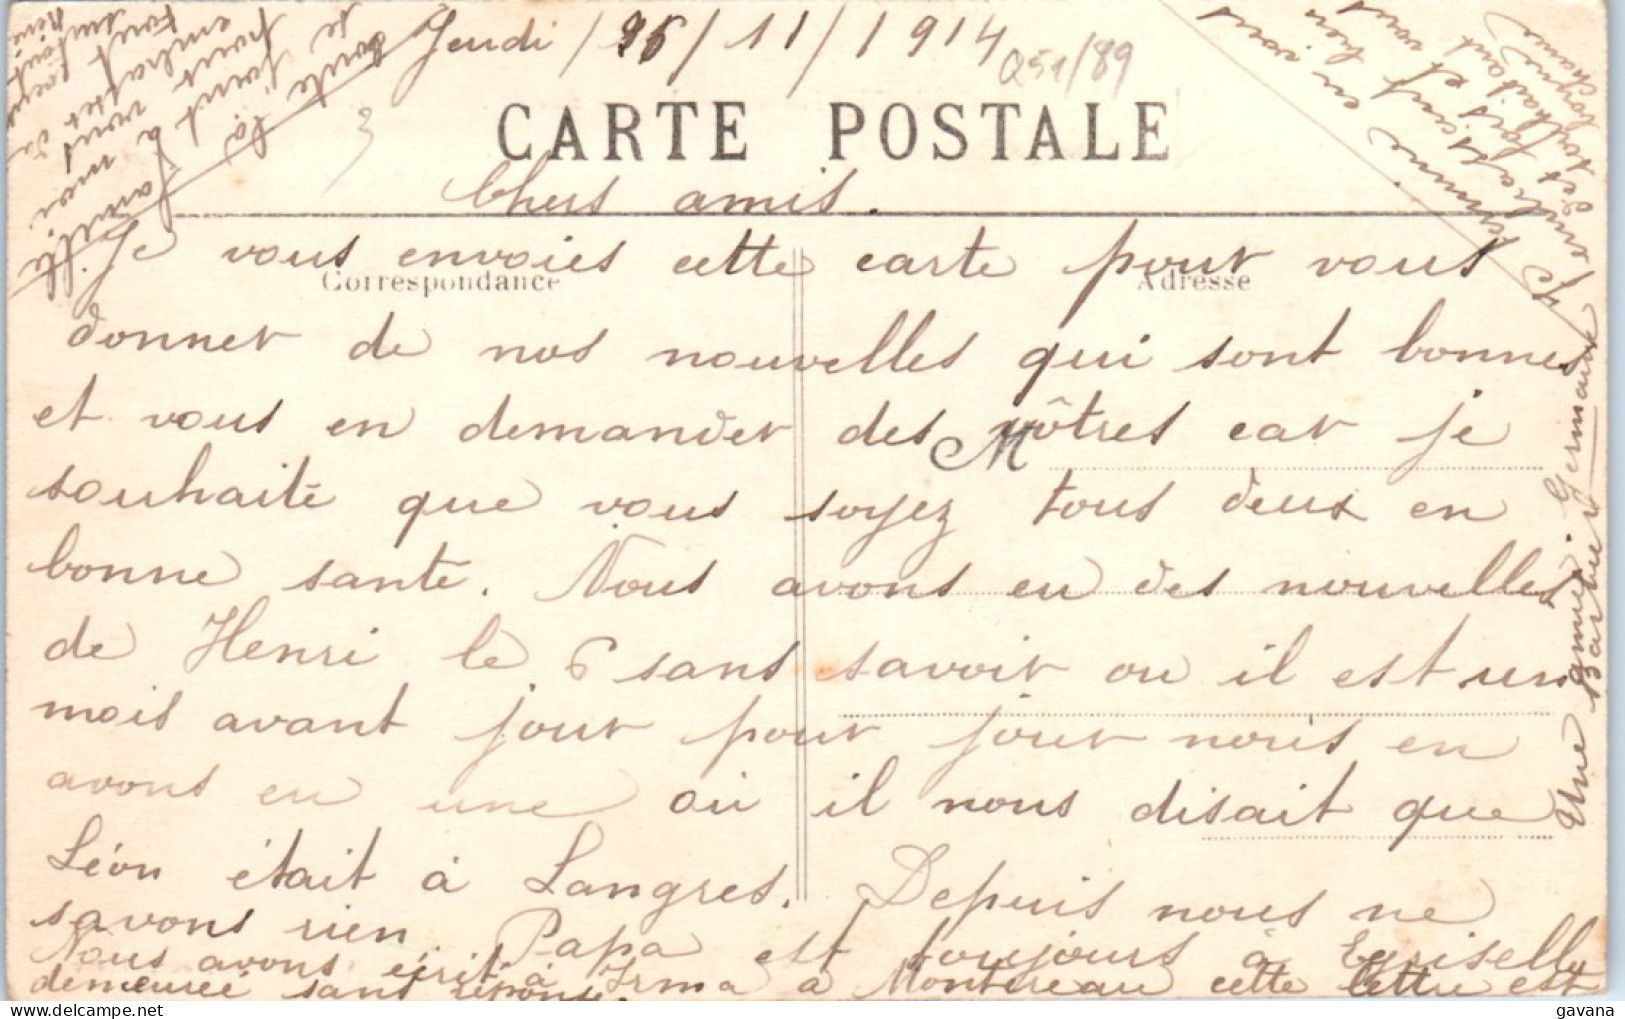 Jeudi / 26 / 11 / 1914
CARTE POSTALE
Chers amis.
Correspondance
Adresse
Je vous envoies cette carte pour vous
donner de nos nouvelles qui sont bonnes
et vous en demander des vôtres car je
M
souhaite que vous soyez tous deux en
bonne santé. Nous avons eu des nouvelles
de Henri le 6 sans savoir ou il est un
mois avant jour pour jour nous en
avons eu une où il nous disait que
Léon était à Langres. Depuis nous ne
savons rien. Papa est toujours à
Nous avons écrit à Irma à Montereau cette lettre est
demeurée sans réponse.
Je
termine en vous
embrassant bien fort et
en vous
souhaitant
Une amie Germaine
Barbier
toute la famille
se joint à moi
pour vous
embrasser
gavana